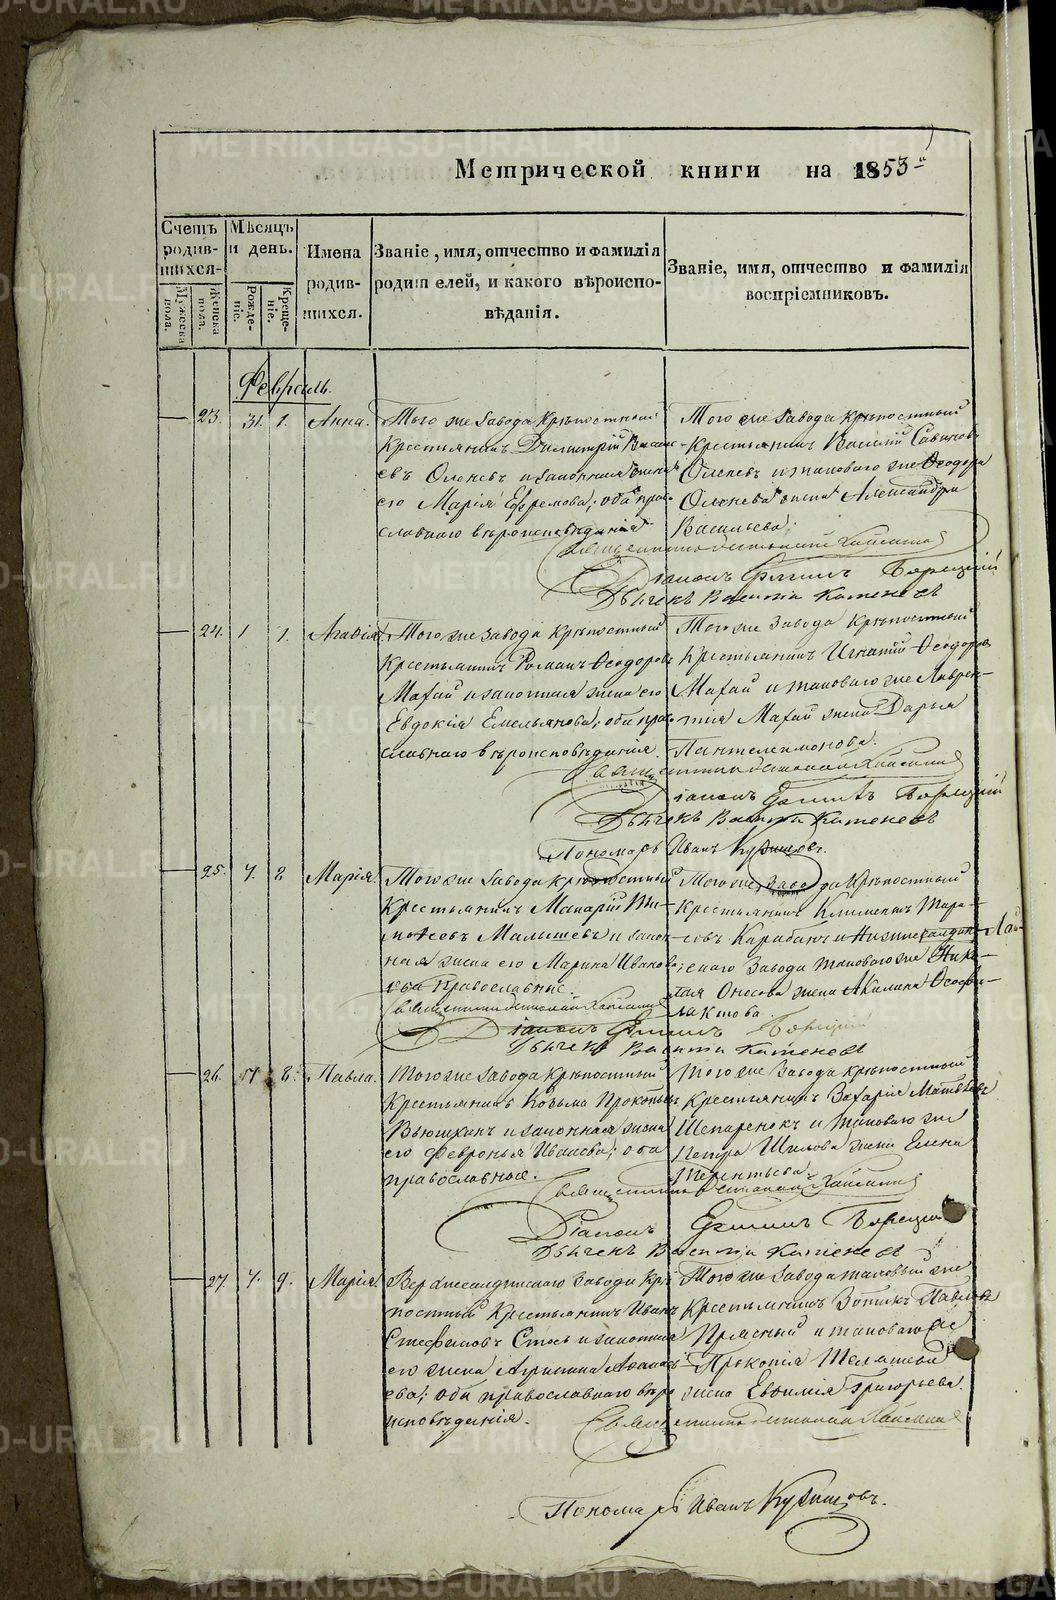 Метрической книги на 1853й
Счетъ родив-шихся.
Мѣсяцъ и день.
Имена родив-шихся.
Званіе, имя, отчество и фамилія родителей, и какого вѣроиспо-вѣданія.
Званіе, имя, отчество и фамилія воспріемниковъ.
Мужеска пола.
Женска пола.
Рожде-ніе.
Креще-ніе.
Февраль.
23. 31. 1. Анна.
Того же завода крѣпостный
крестьянинъ Димитрій Василь-
евъ Оленевъ и законная жена
его Марія Ефремова; оба пра-
славнаго вѣроисповѣданія
Того же завода крѣпостный
крестьянинъ Василій Савиновъ
Оленевъ и таковаго же Ѳеодора
Оленева жена Александра
Васильева.
Діаконъ Борецкій
Дьячекъ Василій Катеневъ
24. 1 1. Агафія
Того же завода крѣпостный
крестьянинъ Романъ Ѳеодоровъ
Махай и законная жена его
Евдокія Емельянова; оба пра-
славнаго вѣроисповѣданія
Того же завода крѣпостный
крестьянинъ Игнатій Ѳеодоровъ
Махай и таковаго же Лаврен-
тія Махай жена Дарья
Пантелеимонова.
Діаконъ Борецкій
Дьячекъ Василій Катеневъ
Пономарь Иванъ
25. 7. 8 Марія.
Того же завода крѣпостный
крестьянинъ Макарій Ти-
моѳеевъ Малышевъ и закон-
ная жена его Марина Иванова
православные.
Того же завода крѣпостный
крестьянинъ Климентъ Тара-
совъ Карабанъ и Нижнесалдин-
скаго завода таковаго же Ники-
тія Оносова жена Акилина Ѳеофи-
лактова.
Діаконъ Борецкій
Дьячекъ Василій Катеневъ
26. 8. Павла.
Того же завода крѣпостный
крестьянинъ Козьма Прокопьевъ
Вьюшкинъ и законная жена
его Февронья Иванова; оба
православные.
Того же завода крѣпостной
крестьянинъ Захарія Матвѣевъ
Шепаренокъ и таковаго же
Петра Шилова жена Елена
Терентьева.
Діаконъ Борецкій
Дьячекъ Василій Катеневъ
27 7. 9. Марія
Верхнесалдинскаго завода крѣ-
постный крестьянинъ Иванъ
Стефановъ и законная
его жена Агрипина
ева; оба православнаго вѣро
исповѣданія.
Того же завода таковый же
крестьянинъ Зотикъ Павловъ
и таковаго же
Прокопія Телѣшева
жена Евѳимія Григорьева.
Пономарь Иванъ
METRIKI.GASO-URAL.RU